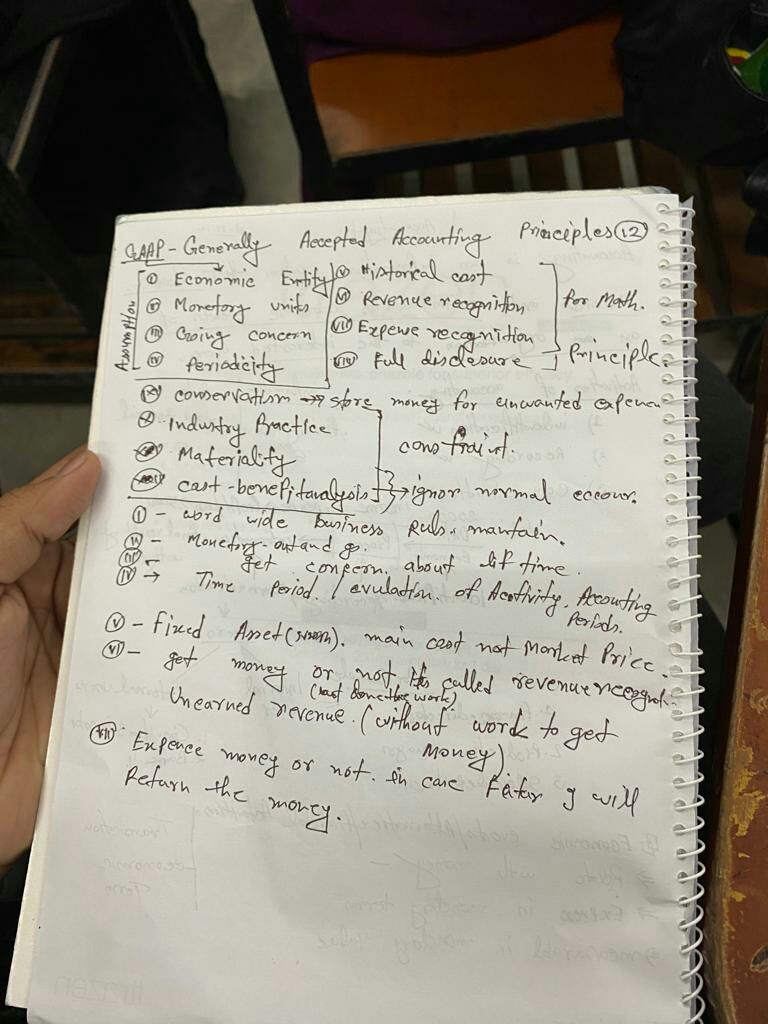 GAAP - Generally Accepted Accounting Principles (12)
Assumption
(i) Economic Entity
(ii) Monetory units
(iii) Going concern
(iv) Periodicity
(v) Historical cast
(vi) Revenue recognition
(vii) Expewe recognition
(viii) Full disclosure
For Math.
Principle.
(ix) conservatism → store money for unwanted expence
(x) Industry Practice
(xi) Materiality
(xii) cast-benefitanalysis
constraint.
→ ignor normal eccour.
(i) - word wide business Ruls. mantain.
(ii) - Monetory-out and go.
(iii) - get concern about lif time.
(iv) → Time Period / evulation of Acftivity, Accounting
Periods.
(v) - Fixed Asset ( ). main cast not Market Price.
(vi) - get money or not, its called revenue recognition
(Just done the work)
Unearned revenue. (without work to get
Money).
(vii) Expence money or not. in case Fetur I will
Return the money.